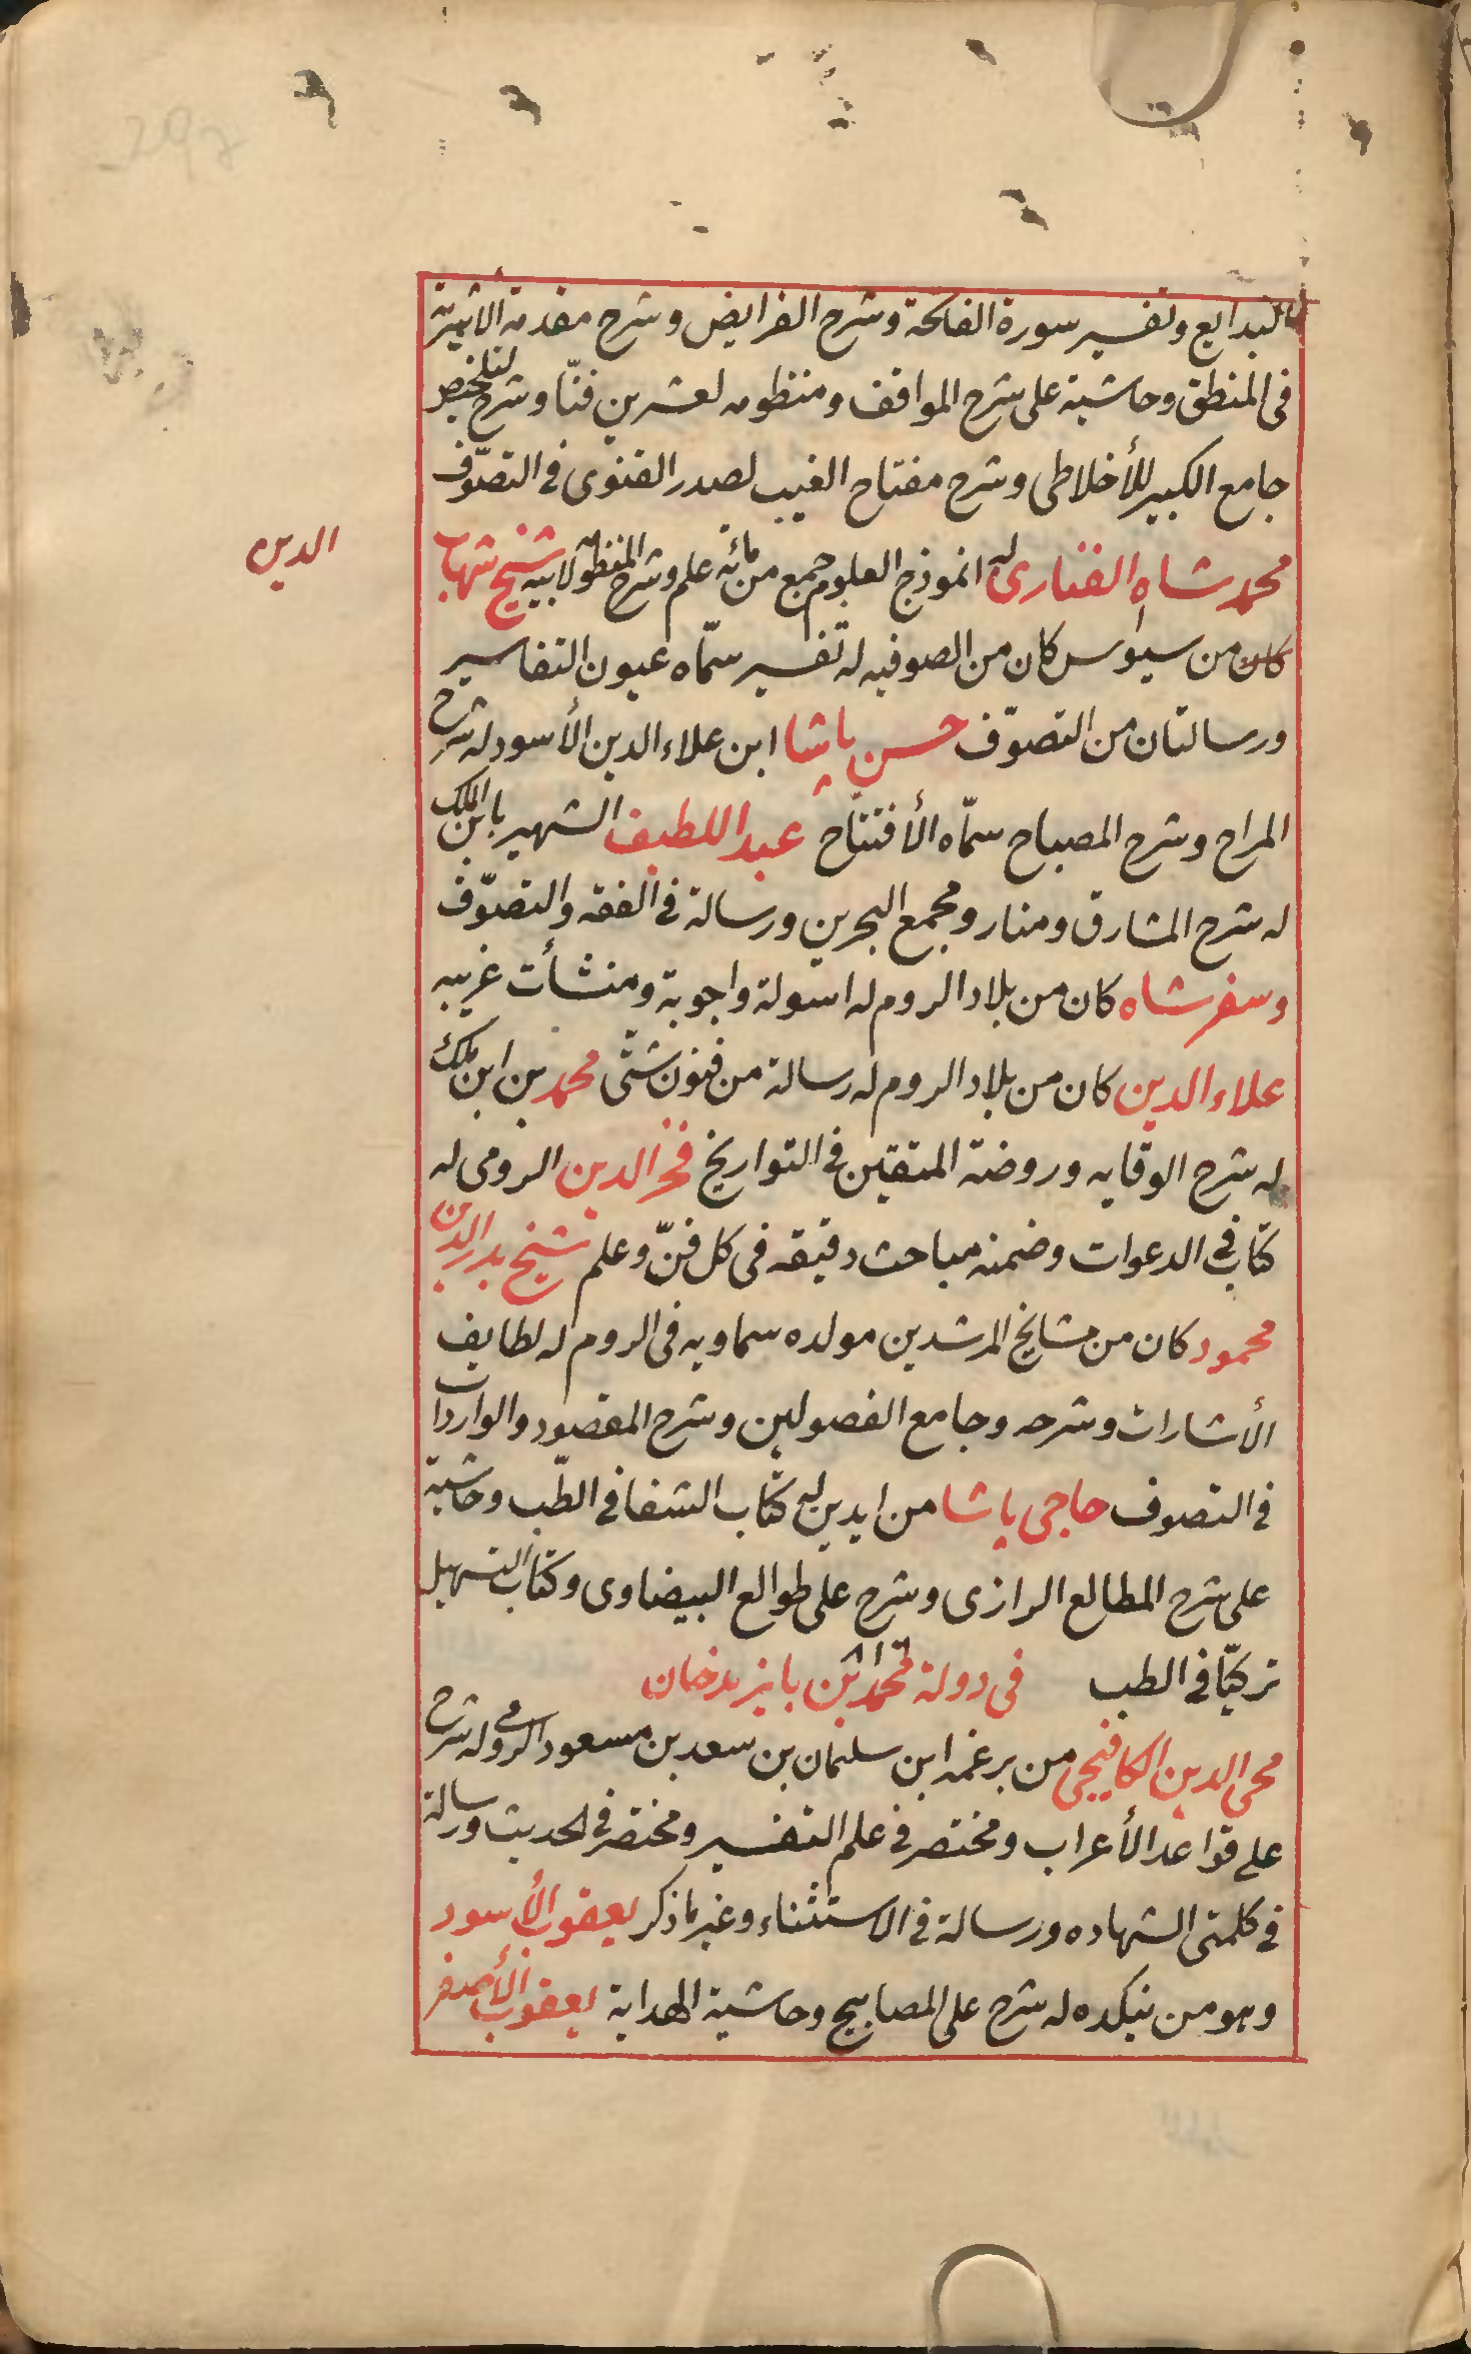 البدايع وتفسير سورة الفاتحة وشرح الفرايض وشرح مقدمة الأثيرية
فى المنطق وحاشية على شرح المواقف ومنظومه لعشرين فنّا وشرح لتلخيص
جامع الكبير للأخلاطى وشرح مفتاح الغيب لصدر القنوى فى التصوّف
محمد شاه الفنارى له انموذج العلوم جمع من مائة علم وشرح المنظومة لابيه شيخ شهاب
الدين
كان من سيواس كان من الصوفيه له تفسير سمّاه عيون التفاسير
ورسالتان من التصوّف حسن پاشا ابن علاء الدين الأسود له شرح
المراح وشرح المصباح سمّاه الأفتتاح عبد اللطيف الشهير بابن الملك
له شرح المشارق ومنار ومجمع البحرين ورسالة فى الفقه والتصوّف
وسفر شاه كان من بلاد الروم له اسولة واجوبة ومنشأت غريبه
علاء الدين كان من بلاد الروم له رسالة من فنون شتّى محمد بن ابن ملك
له شرح الوقايه وروضة المتقين فى التواريخ فخر الدين الرومى له
كتاب فى الدعوات وضمنه مباحث دقيقه فى كل فنّ وعلم شيخ بدر الدين
محمود كان من مشايخ المرشدين مولده سماويه فى الروم له لطايف
الأشارات وشرحه وجامع الفصولين وشرح المقصود والواردات
فى التصوف حاجى پاشا من ايدين له كتاب الشفا فى الطّب وحاشية
على شرح المطالع الرازى وشرح على طوالع البيضاوى وكتاب التسهيل
تركيّا فى الطب فى دولة محمد ابن بايزيد خان
محى الدين الكافيجى من برغمه ابن سليمان بن سعد بن مسعود الرومى له شرح
على قواعد الأعراب ومختصر فى علم التفسير ومختصر فى الحديث ورسالة
فى كلمتى الشهاده ورسالة فى الاستثناء وغير ما ذكر يعقوب الأسود
وهو من نيكده له شرح على المصابيح وحاشية الهداية يعقوب الأصفر